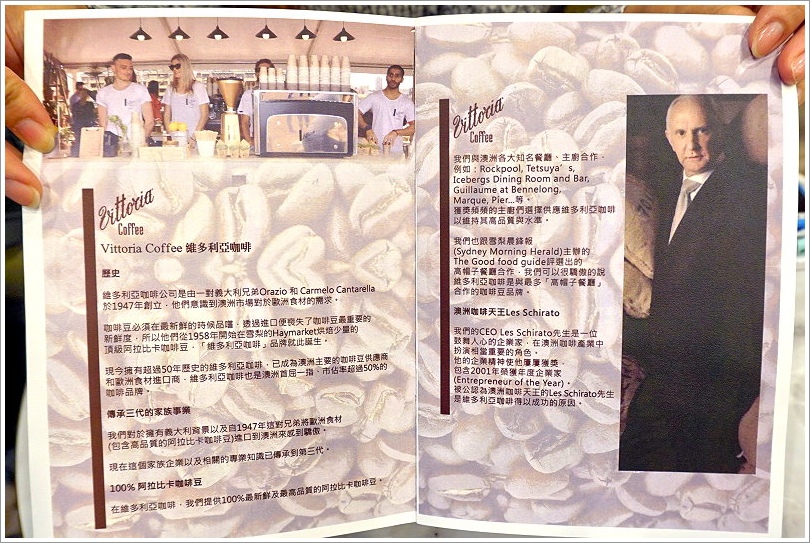 Vittoria
Coffee
Vittoria Coffee 維多利亞咖啡
歷史
維多利亞咖啡公司是由一對義大利兄弟Orazio 和 Carmelo Cantarella
於1947年創立，他們意識到澳洲市場對於歐洲食材的需求。
咖啡豆必須在最新鮮的時候品嚐，透過進口便喪失了咖啡豆最重要的
新鮮度，所以他們從1958年開始在雪梨的Haymarket烘焙少量的
頂級阿拉比卡咖啡豆，「維多利亞咖啡」品牌就此誕生。
現今擁有超過50年歷史的維多利亞咖啡，已成為澳洲主要的咖啡豆供應商
和歐洲食材進口商，維多利亞咖啡也是澳洲首屈一指，市佔率超過50%的
咖啡品牌。
傳承三代的家族事業
我們對於擁有義大利背景以及自1947年這對兄弟將歐洲食材
(包含高品質的阿拉比卡咖啡豆)進口到澳洲來感到驕傲。
現在這個家族企業以及相關的專業知識已傳承到第三代。
100% 阿拉比卡咖啡豆
在維多利亞咖啡，我們提供100%最新鮮及最高品質的阿拉比卡咖啡豆。
Vittoria
Coffee
我們與澳洲各大知名餐廳、主廚合作，
例如：Rockpool, Tetsuya's,
Icebergs Dining Room and Bar,
Guillaume at Bennelong,
Marque, Pier...等。
獲獎頻頻的主廚們選擇供應維多利亞咖啡
以維持其高品質與水準。
我們也跟雪梨晨鋒報
(Sydney Morning Herald)主辦的
The Good food guide評選出的
高帽子餐廳合作，我們可以很驕傲的說
維多利亞咖啡是與最多「高帽子餐廳」
合作的咖啡豆品牌。
澳洲咖啡天王Les Schirato
我們的CEO Les Schirato先生是一位
鼓舞人心的企業家，在澳洲咖啡產業中
扮演相當重要的角色。
他的企業精神使他屢屢獲獎，
包含2001年榮獲年度企業家
(Entrepreneur of the Year)。
被公認為澳洲咖啡天王的Les Schirato先生
是維多利亞咖啡得以成功的原因。